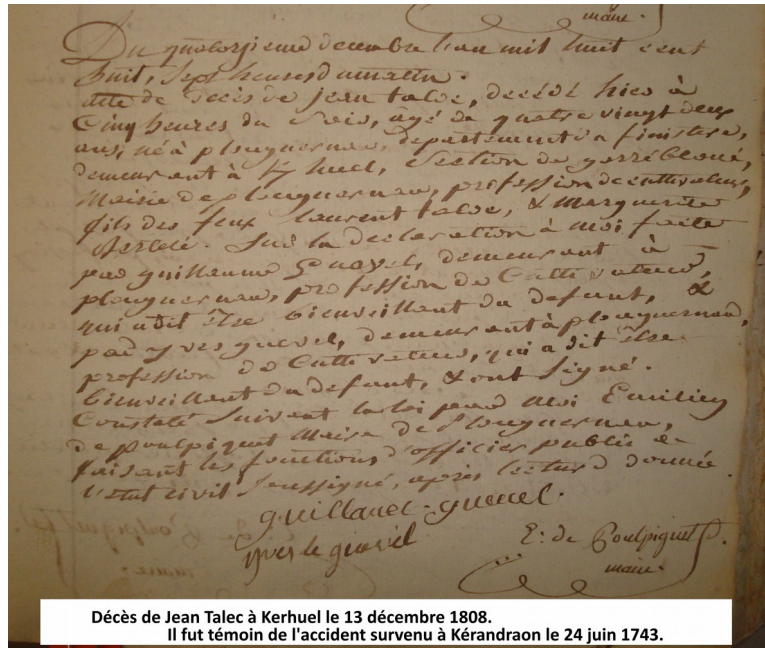 maire.
Du quatorzieme decembre l'an mil huit cent
huit, Sept heures du matin.
acte de decès de jean taloc, decédé hier à
Cinq heures du Soir, agé de quatre vingt deux
ans, né à plouguerneau, departement du finistere,
demeurant à Kerhuel, Section de
Mairie de plouguerneau, profession de cultivateur,
fils des feux laurent taloc, & marguerite
Sur la declaration à moi faite
par guillaume demeurant à
plouguerneau, profession de Cultivateur,
qui a dit être bienveillant du defunt, &
par yves guevel, demeurant à plouguerneau,
profession de Cultivateur, qui a dit être
bienveillant du defunt, & ont Signé.
Constaté Suivant la loi par Moi Emilien
de poulpiquet Maire de Plouguerneau,
faisant les fonctions d'officier public de
l'etat civil Soussigné, après lecture donnée.
yves le
E: de Poulpiquet
maire.
Décès de Jean Talec à Kerhuel le 13 décembre 1808.
Il fut témoin de l'accident survenu à Kérandraon le 24 juin 1743.